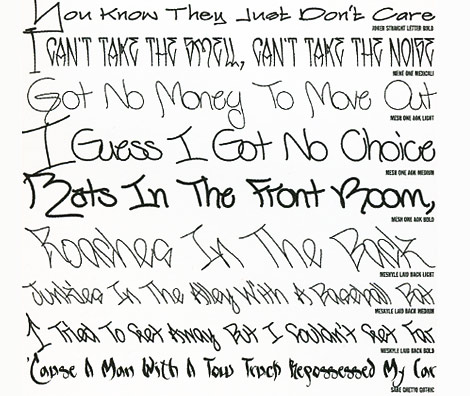 You Know They Just Don't Care
JOKER STRAIGHT LETTER BOLD
I CAN'T TAKE THE SMELL, CAN'T TAKE THE NOISE
MENE ONE MEDICALI
Got No Money To Move Out
MESH ONE AOK LIGHT
I Guess I Got No Choice
MESH ONE AOK MEDIUM
Rats In The Front Room,
MESH ONE AOK BOLD
Roaches In The Back
MESKYLE LAID BACK LIGHT
Junkies In The Alley With A Baseball Bat
MESKYLE LAID BACK MEDIUM
I Tried To Get Away But I Couldn't Get Far
MESKYLE LAID BACK BOLD
'Cause A Man With A Tow Truck Repossessed My Car
SABE GHETTO GOTHIC